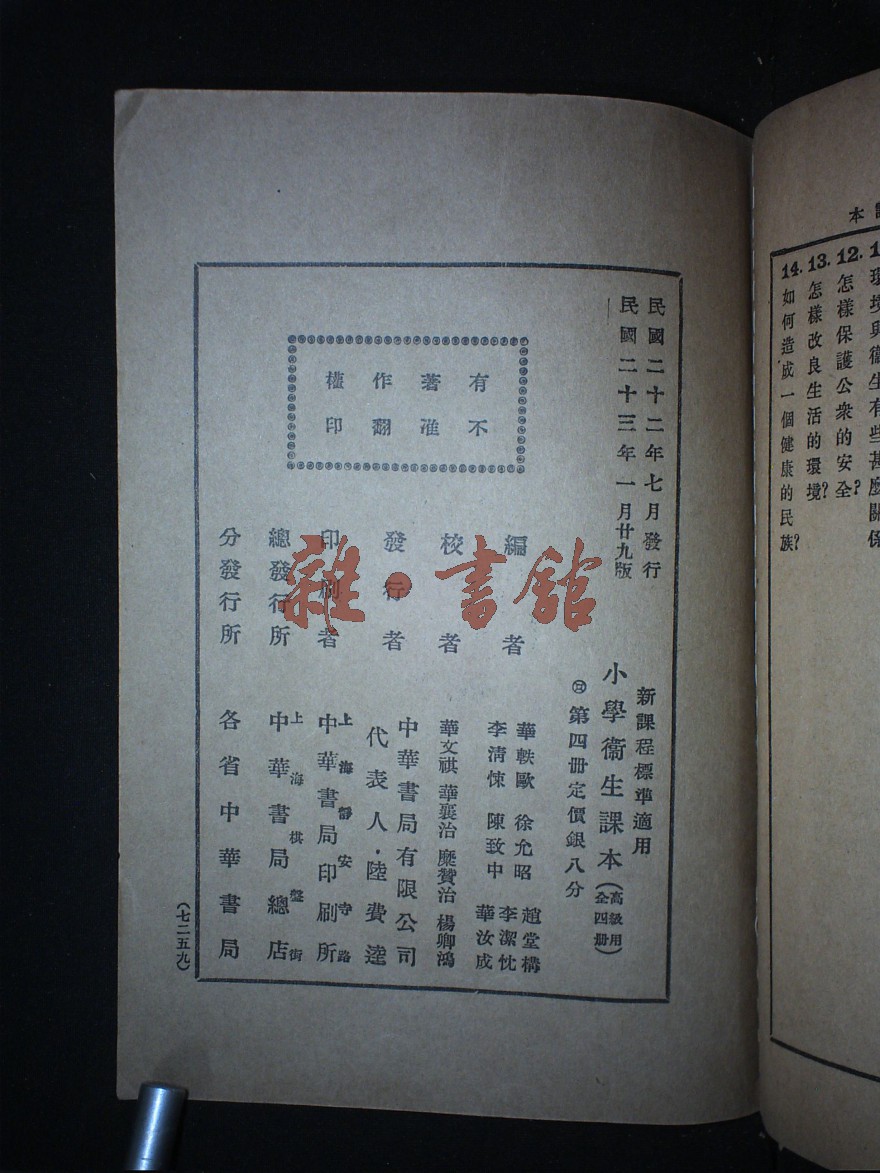 民國二十二年七月發行
民國二十三年一月廿九版
新課程標準適用
小學衞生課本(高級用全四冊)
第四冊定價銀八分
有著作權
不准翻印
編者
華軼歐 徐允昭 趙堂構
李清悚 陳致中 李潔忱
華汝成
校者
華文祺 華襄治 糜贊治 楊卿鴻
發行者
中華書局有限公司
代表人·陸費逵
印刷者
上海靜安寺路
中華書局印刷所
總發行所
上海棋盤街
中華書局總店
分發行所
各省中華書局
(七二五九)
雜·書館
本
環境與衞生有些甚麼關係
12. 怎樣保護公衆的安全?
13. 怎樣改良生活的環境?
14. 如何造成一個健康的民族?